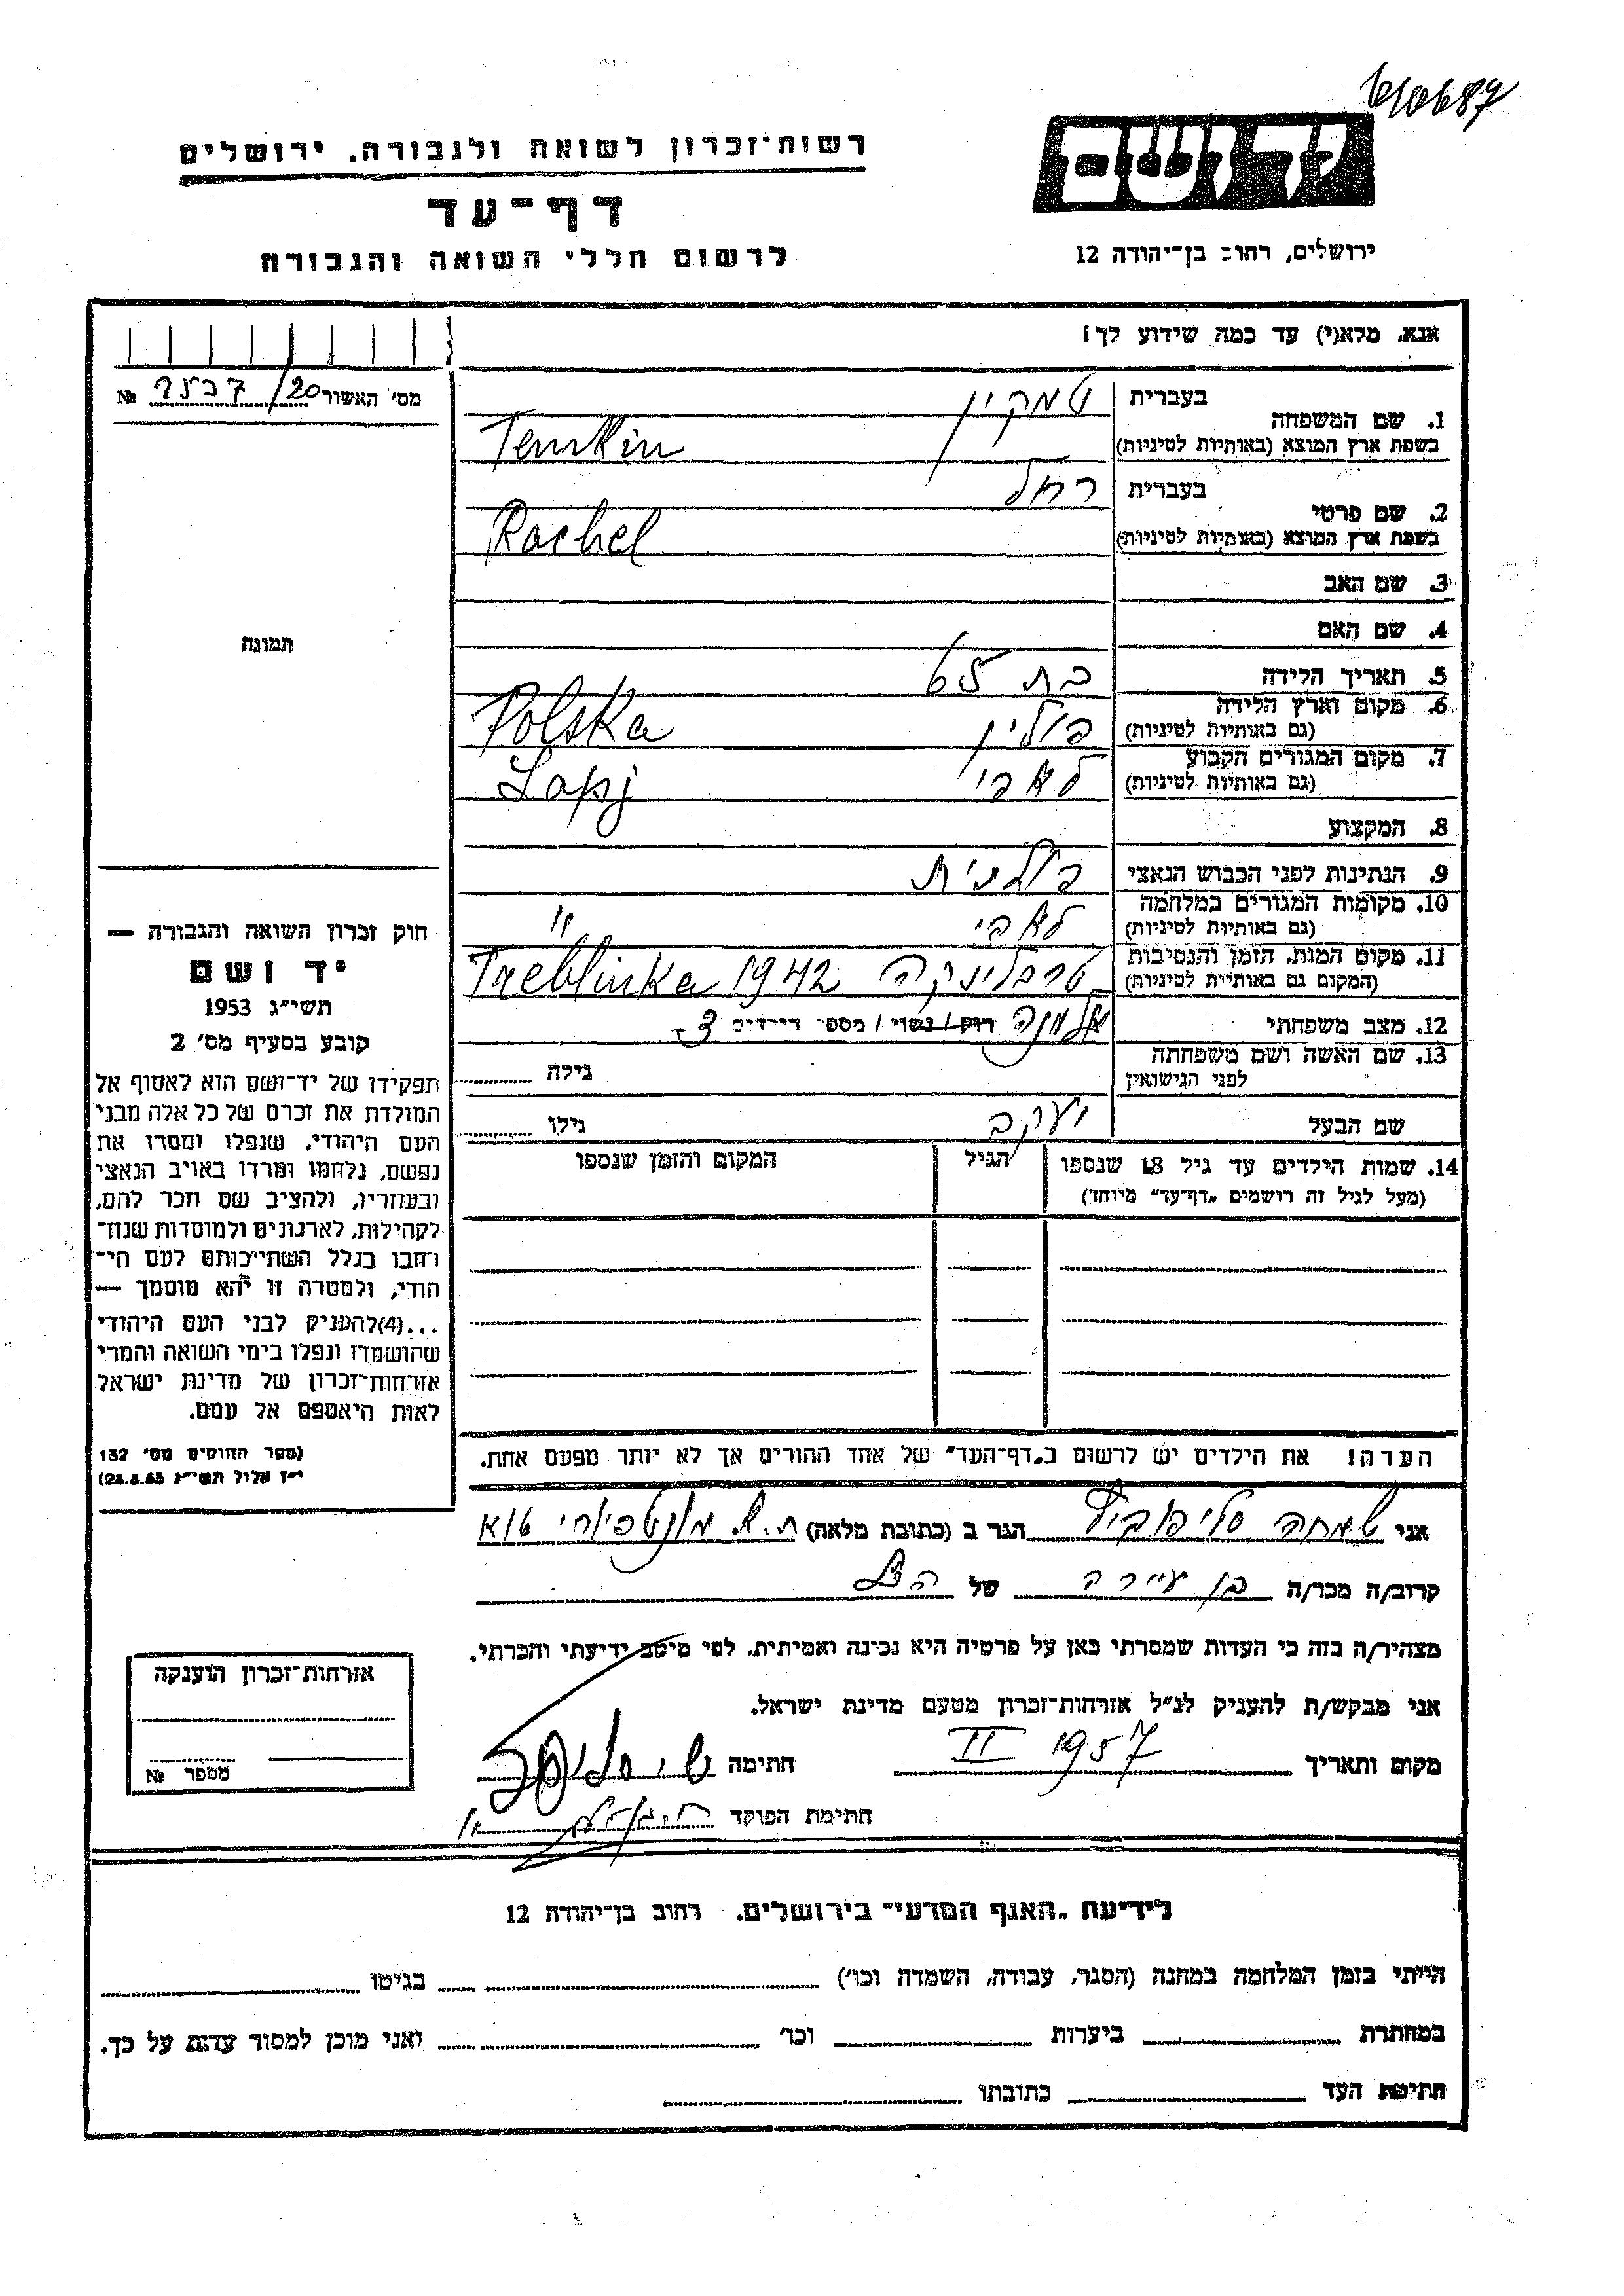 610687
יד ושם
רשות־זכרון לשואה ולגבורה. ירושלים
דף־עד
ירושלים, רחוב בן־יהודה 12
לרשום חללי השואה והגבורה
אנא. מלא(י) עד כמה שידוע לך!
מס׳ האשור 20/
1. שם המשפחה בעברית טמקין
בשפת ארץ המוצא (באותיות לטיניות) Temkin
2. שם פרטי בעברית רחל
בשפת ארץ המוצא (באותיות לטיניות) Rachel
3. שם האב
4. שם האם
תמונה
5. תאריך הלידה בת 65
6. מקום וארץ הלידה
(גם באותיות לטיניות) פולין Polska
7. מקום המגורים הקבוע
(גם באותיות לטיניות) לאפי Lapj
8. המקצוע
9. הנתינות לפני הכבוש הנאצי פולנית
10. מקומות המגורים במלחמה
(גם באותיות לטיניות) לאפי "
11. מקום המות. הזמן והנסיבות
(המקום גם באותיות לטיניות) טרבלינקה 1942 Treblinka
12. מצב משפחתי אלמנה רוק / נשוי / מספר הילדים 3
13. שם האשה ושם משפחתה
לפני הנישואין גילה
שם הבעל יעקב גילו
14. שמות הילדים עד גיל 18 שנספו הגיל המקום והזמן שנספו
(מעל לגיל זה רושמים „דף־עד” מיוחד)
חוק זכרון השואה והגבורה —
יד ושם
תשי״ג 1953
קובע בסעיף מס׳ 2
תפקידו של יד־ושם הוא לאסוף אל
המולדת את זכרם של כל אלה מבני
העם היהודי, שנפלו ומסרו את
נפשם, נלחמו ומרדו באויב הנאצי
ובעוזריו, ולהציב שם וזכר להם,
לקהילות, לארגונים ולמוסדות שנח־
רבו בגלל השתייכותם לעם הי־
הודי, ולמטרה זו יהא מוסמך —
...(4)להעניק לבני העם היהודי
שהושמדו ונפלו בימי השואה והמרי
אזרחות־זכרון של מדינת ישראל
לאות היאספם אל עמם.
(ספר החוקים מס׳ 132
י״ז אלול תשי״ג 28.8.53)
הערה! את הילדים יש לרשום ב„דף־העד” של אחד ההורים אך לא יותר מפעם אחת.
אני שמחה סליפוביץ הגר ב (כתובת מלאה) ת.א. מונטפיורי
קרוב/ה מכר/ה בן עיירה של הנ״ל
מצהיר/ה בזה כי העדות שמסרתי כאן על פרטיה היא נכונה ואמיתית. לפי מיטב ידיעתי והכרתי.
אני מבקש/ת להעניק לנ״ל אזרחות־זכרון מטעם מדינת ישראל.
מקום ותאריך II 1957 חתימה
חתימת הפוקד
אזרחות־זכרון הוענקה
מספר №
לידיעת „האגף המדעי” בירושלים. רחוב בן־יהודה 12
הייתי בזמן המלחמה במחנה (הסגר, עבודה, השמדה וכו׳) בגיטו
במחתרת ביערות וכו׳ ואני מוכן למסור עדות על כך.
חתימת העד כתובתו